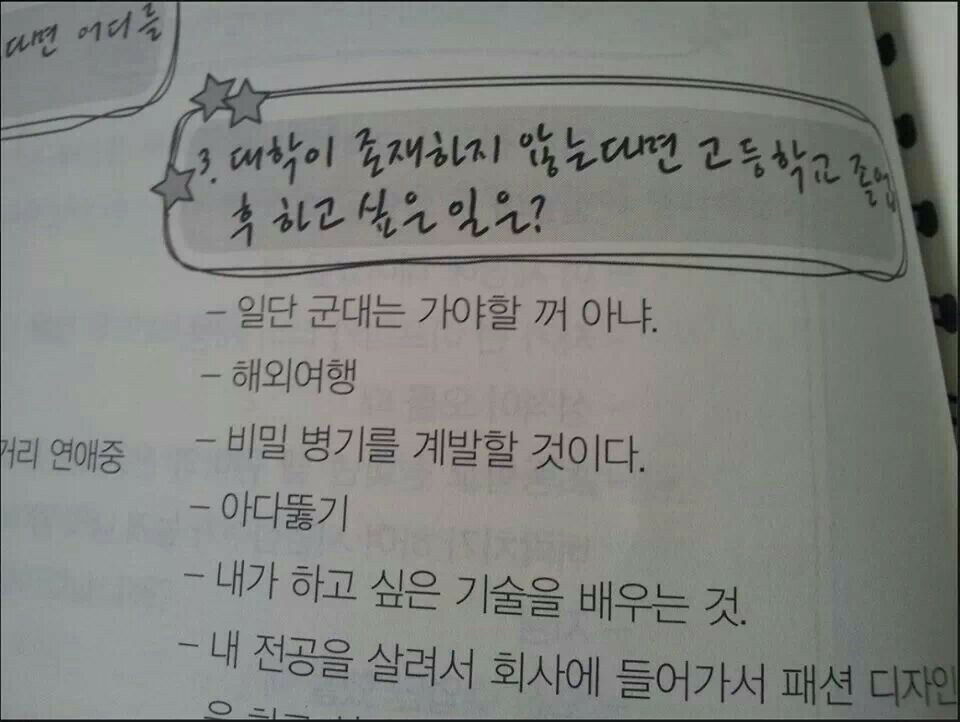 다면 어디를
3. 대학이 존재하지 않는다면 고등학교 졸업
후 하고 싶은 일은?
- 일단 군대는 가야할 꺼 아냐.
- 해외여행
- 비밀 병기를 계발할 것이다.
거리 연애중
- 아다뚫기
- 내가 하고 싶은 기술을 배우는 것.
- 내 전공을 살려서 회사에 들어가서 패션 디자인
을 하고